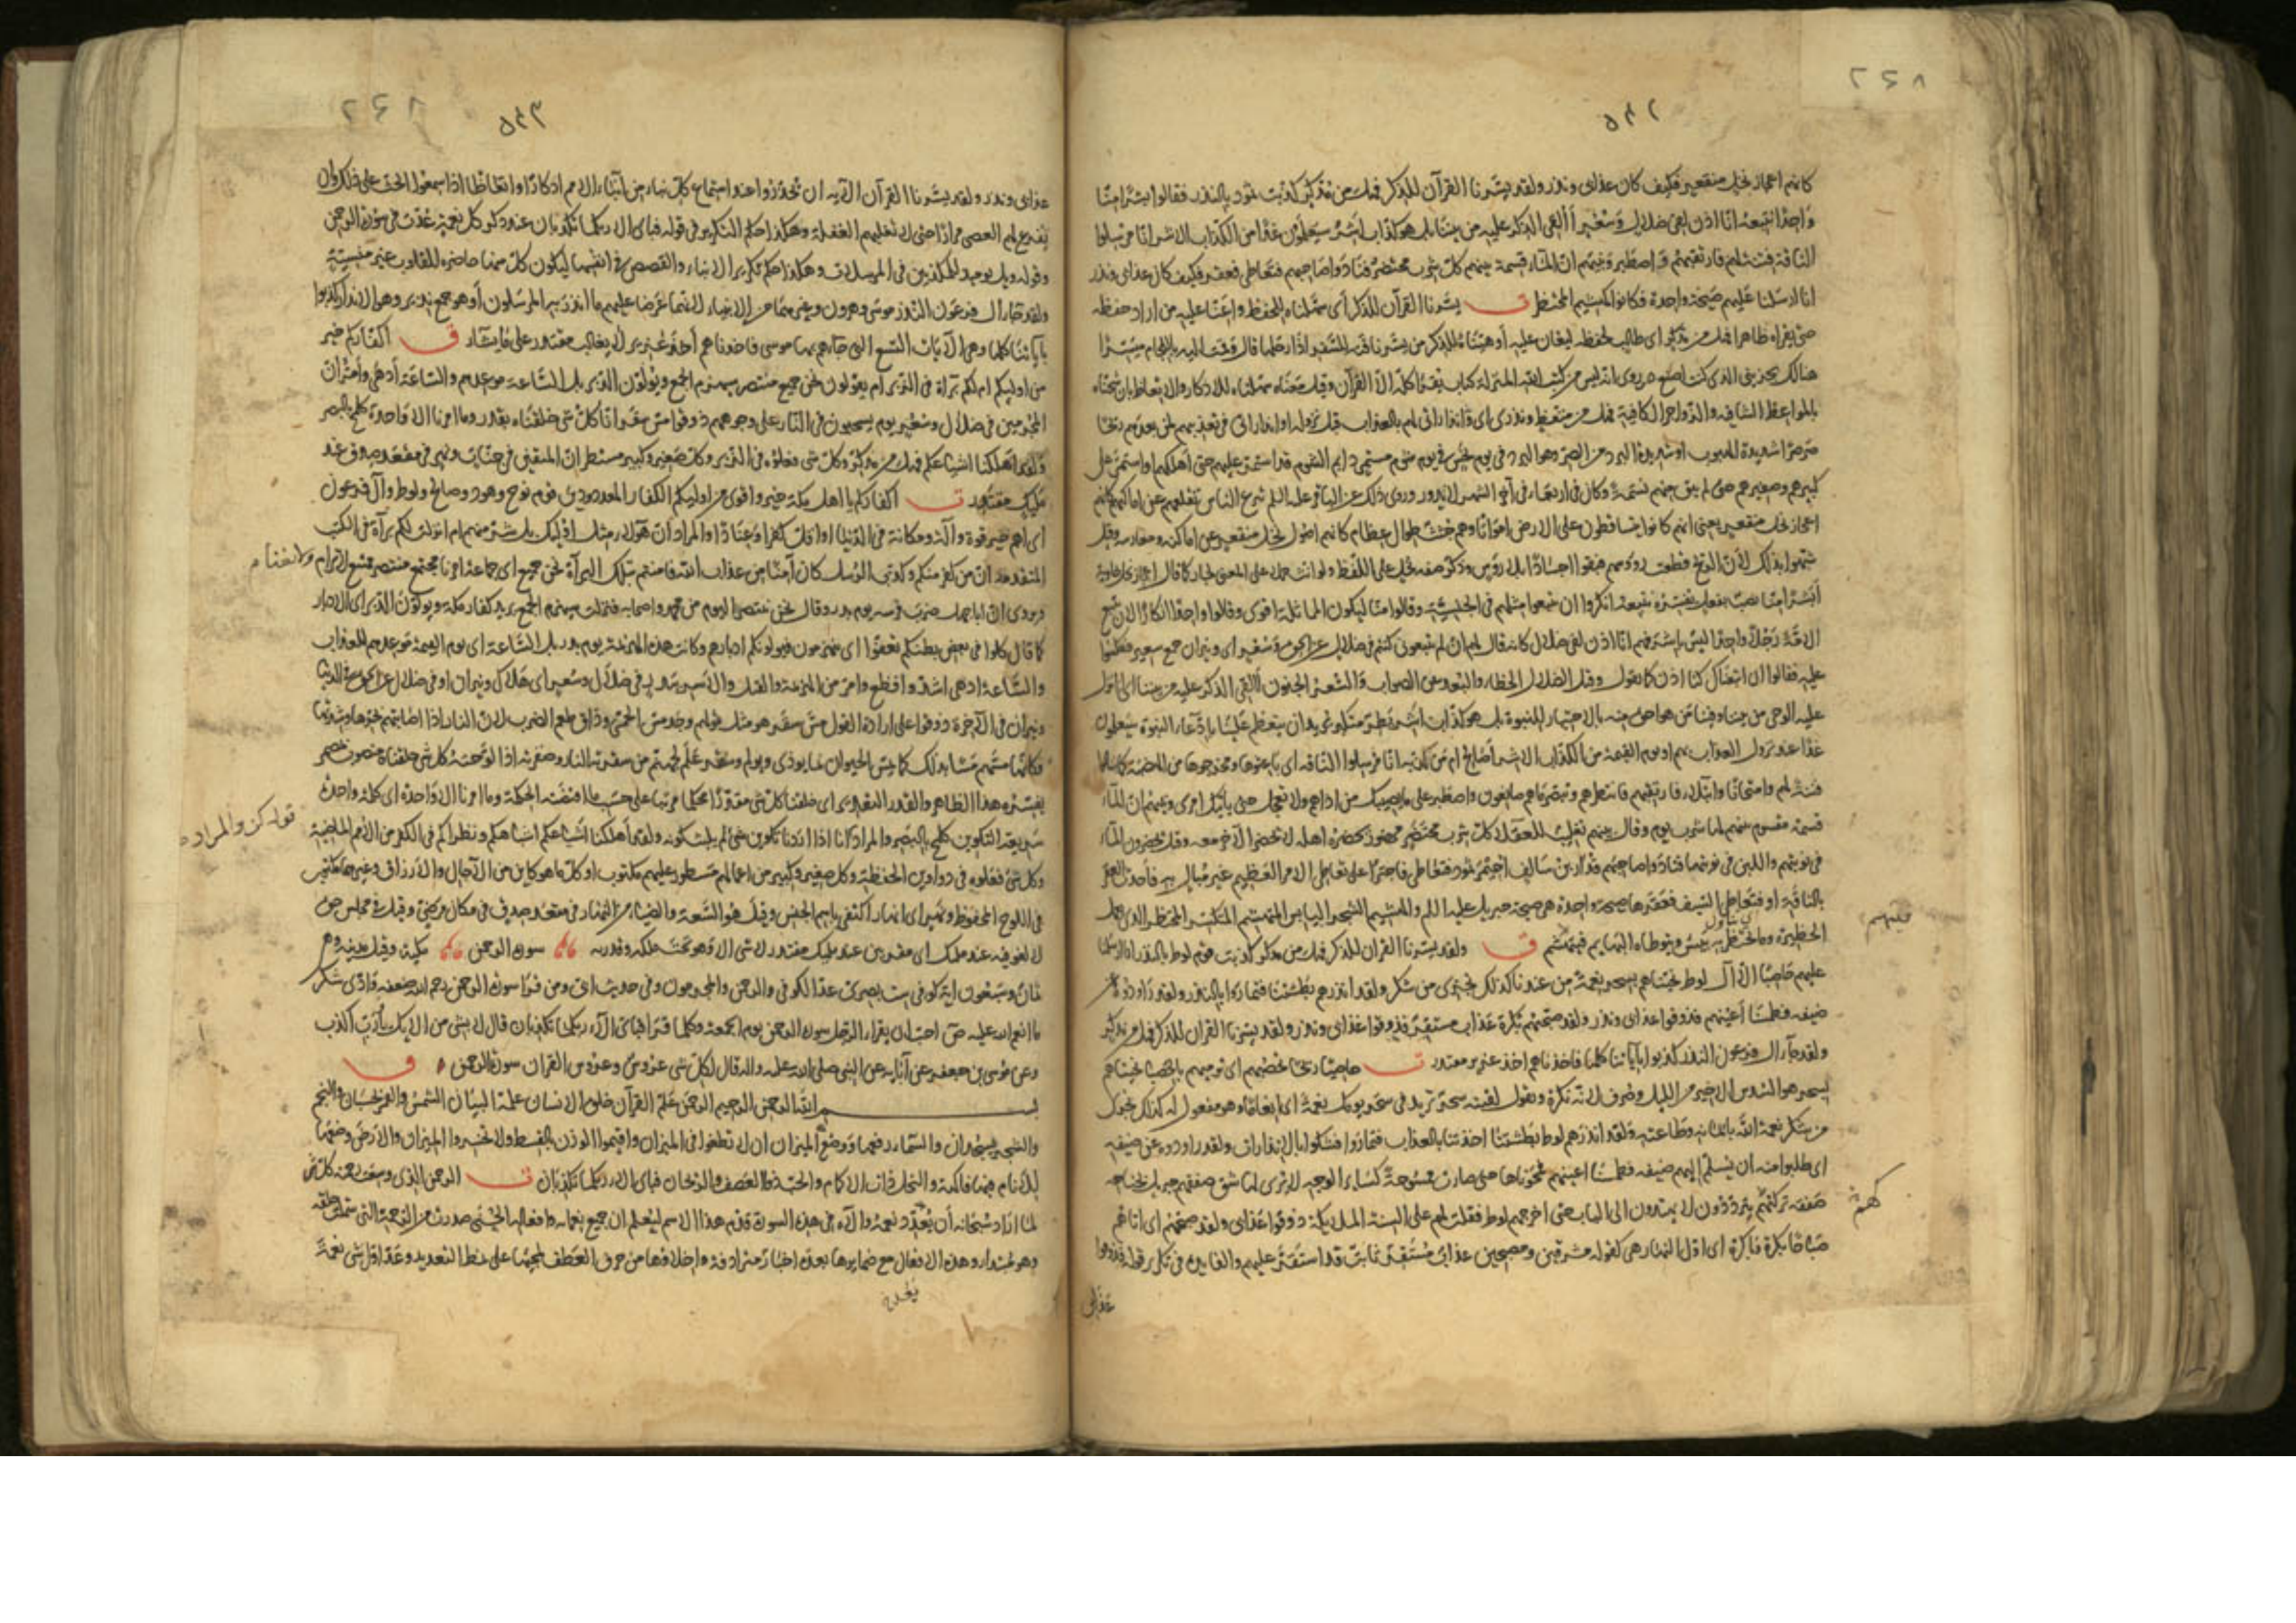 ٢٤٨
٥٤٢
كانهم اعجاز نخل منقعر فكيف كان عذابى ونذر ولقد يسّرنا القرآن للذكر فهل من مدّكر كذّبت ثمود بالنذر فقالوا ابشرًا منّا
واحدًا نتبعه انّا اذن لفى ضلال وسُعُر أألقى الذكر عليه من بيننا بل هو كذّاب اشر سيعلمون غدًا من الكذّاب الاشر انّا مرسلوا
الناقة فتنة لهم فارتقبهم واصطبر ونبّئهم انّ الماء قسمة بينهم كل شرب محتضر فنادوا صاحبهم فتعاطى فعقر فكيف كان عذابى ونذر
انا ارسلنا عليهم صيحة واحدة فكانوا كهشيم المحتظر ت يسّرنا القرآن للذكر أى سهّلناه للحفظ واعنّا عليه من اراد حفظه
حتى يقرأه ظاهرا فهل من مدّكر اى طالب لحفظه ليعان عليه أو هيّأناه للذكر من يسّر ناقته للسفر اذا رحلها قال وقمت اليه باللجام ميسّرًا
هنالك يجزينى الذى كنت اصنع ويروى انه ليس من كتب الله المنزلة كتاب يقرأ كلّه الّا القرآن وقيل معناه سهّلناه للاذكار والاتعاظ بان شحنّاه
بالمواعظ الشافية والزواجر الكافية فهل من متعظ ونذرى اى وانذاراتى لهم بالعذاب قبل نزوله او انذاراتى فى تعذيبهم لمن بعدهم ريحًا
صرصرًا شديدة الهبوب او شديدة البرد من الصرّ وهو البرد فى يوم نحس فى يوم شوم مستمر دايم الشوم قد استمر عليهم حتى اهلكهم او استمر على
كبيرهم وصغيرهم حتى لم يبق منهم نسمة وكان فى اربعاء فى آخر الشهر لا يدور وروى ذلك عن الباقر عليه السلم تنزع الناس تقلعهم عن اماكنهم كانهم
اعجاز نخل منقعر يعنى انهم كانوا يتساقطون على الارض امواتًا وهم جثث طوال عظام كانهم اصول نخل منقعر عن اماكنه ومغارسه وقيل
شبّهوا بذلك لأن الريح قطعت رؤسهم فبقوا اجسادًا بلا رؤس وذكّر صفة نخل على اللفظ ولو انّث حمل على المعنى لجاز كما قال اعجاز نخل خاوية
أبشرا منّا نصب بفعل يفسّره نتبعه انكروا ان يتبعوا مثلهم فى الجنسيّة وقالوا منّا ليكون المماثلة اقوى وقالوا واحدًا انكارًا لان تتبع
الامّة رجلًا واحدًا ليس باشرفهم انّا اذن لفى ضلال كانه قال لهم ان لم تتبعونى كنتم فى ضلال عن الحق وسُعُر اى ونيران جمع سعير فعكسوا
عليه فقالوا ان اتبعناك كنّا اذن كما تقول وقيل الضلال الخطاء والبعد عن الصواب والسعر الجنون أألقى الذكر عليه من بيننا اى انزل
عليه الوحى من بيننا وفينا من هو احق منه بالاختيار للنبوة بل هو كذّاب اشر بطر متكبّر يريد ان يتعظم علينا بادّعاء النبوة سيعلمون
غدًا عند نزول العذاب بهم او يوم القيمة من الكذّاب الاشر أصالح ام من كذّبه انّا مرسلوا الناقة اى باعثوها ومخرجوها من الهضبة كما سألوا
فتنة لهم وامتحانًا وابتلاء فارتقبهم فانتظرهم وتبصّر ما هم صانعون واصطبر على ما يصيبك من اذاهم ولا تعجل حتى يأتيك امرى ونبّئهم ان الماء
قسمة مقسوم بينهم لها شرب يوم وقال بينهم تغليبًا للعقلاء كل شرب محتضر محضور يحضره اهله لا يحضر الآخر معه وقيل يحضرون الماء
فى نوبتهم واللبن فى نوبتها فنادوا صاحبهم قدار بن سالف احيمر ثمود فتعاطى فاجترأ على تعاطى الامر العظيم غير مبال به فأحدث العقر
بالناقة او فتعاطى السيف فعقرها صيحة واحدة هى صيحة جبريل عليه السلم والهشيم الشجر اليابس المتهشم المتكسر والمحتظر الذى يعمل
الحظيرة وما يحتظر به ييبس ويتوطأه البهايم فيتهشم ق ولقد يسّرنا القران للذكر فهل من مدّكر كذبت قوم لوط بالنذر انا ارسلنا
عليهم حاصبًا الّا آل لوط نجّيناهم بسحر نعمةً من عندنا كذلك نجزى من شكر ولقد انذرهم بطشتنا فتماروا بالنذر ولقد راودوه عن
ضيفه فطمسنا أعينهم فذوقوا عذابى ونذر ولقد صبّحهم بكرة عذاب مستقرّ فذوقوا عذابى ونذر ولقد يسّرنا القران للذكر فهل من مدّكر
ولقد جآء آل فرعون النذر كذّبوا بآياتنا كلّها فاخذناهم اخذ عزيز مقتدر ت حاصبًا ريحًا تحصبهم اى ترميهم بالحصباء نجّيناهم
بسحر هو السدس الاخير من الليل وصُرف لانّه نكرة وتقول لقيته سحرَ تريد فى سحر يومك نعمةً اى انعامًا وهو مفعول له كذلك نجزى
من شكر نعمة الله بايمانه وطاعته ولقد انذرهم لوط بطشتنا اخذتنا بالعذاب فتماروا فشكّوا بالانذارات ولقد راودوه عن ضيفه
اى طلبوا منه ان يسلّم اليهم ضيفه فطمسنا اعينهم فمحوناها حتى صارت ممسوحة كساير الوجه لا يرى لها شق صفقهم جبريل بجناحه
صفقة تركتهم يتردّدون لا يهتدون الى الباب حتى اخرجهم لوط فقلت لهم على السنة الملايكة ذوقوا عذابى ولقد صبّحهم اى اتاهم
صباحًا بكرة فى بكرة اى اوّل النهار هى كقوله مشرقين ومصبحين عذاب مستقرّ ثابت قد استقرّ عليهم والفايدة فى تكرير قوله فذوقوا
عذابى
٢٤٨
٥٤٣
عذابى ونذر ولقد يسّرنا القرآن الآية ان تجدّدوا عند استماع كلّ نباء من أنباء الامم ادّكارًا واتعاظًا اذا سمعوا الحث على ذلك وان
يقرع لهم العصى مرارًا حتى لا تغلبهم الغفلة وهكذا حكم التكرير فى قوله فباى الآء ربكما تكذبان عند ذكر كل نعمة عُدّت فى سورة الرحمن
وقوله ويل يومئذ للمكذبين فى المرسلات وهكذا حكم تكرير الانباء والقصص فى انفسها ليكون كل منها حاضرة للقلوب غير منسيّة
ولقد جاء آل فرعون النذر موسى وهرون وغيرهما من الانبياء لانهما عرضا عليهم ما انذر به المرسلون أو هو جمع نذير وهو الانذار كذبوا
بآياتنا كلها وهى الآيات التسع التى جاءهم بها موسى فاخذناهم أخذ عزيز لا يغالب مقتدر على ما يشآء ق أكفّاركم خير
من اولئكم ام لكم برآءة فى الزبر ام يقولون نحن جميع منتصر سيهزم الجمع ويولّون الدبر بل الساعة موعدهم والساعة أدهى وأمرّ انّ
المجرمين فى ضلال وسُعُر يوم يسحبون فى النار على وجوههم ذوقوا مسّ سقر انّا كل شئ خلقناه بقدر وما امرنا الا واحدة كلمح بالبصر
ولقد اهلكنا اشياعكم فهل من مدّكر وكل شئ فعلوه فى الزبر وكل صغير وكبير مستطر انّ المتقين فى جنّات ونهر فى مقعد صدق عند
مليك مقتدر ت اكفّاركم يا اهل مكة خير واقوى من اولئكم الكفار المعدودين قوم نوح وهود وصالح ولوط وآل فرعون
اى اهم خير قوة وآلة ومكانة فى الدنيا او اقل كفرًا وعنادًا والمراد ان هؤلاء مثل اولئك بل شر منهم ام انزلت لكم برآءة فى الكتب
المتقدمة ان من كفر منكم وكذّب الرسل كان آمنًا من عذاب الله فامنتم بتلك البرآءة نحن جميع اى جماعة امرنا مجتمع منتصر ممتنع لا نرام ولا نضام
ويروى ان ابا جهل ضرب فرسه يوم بدر وقال نحن ننتصر اليوم من محمد واصحابه فنزلت سيهزم الجمع يريد كفار مكة ويولون الدبر اى الادبار
كما قال كلوا فى بعض بطنكم تعفّوا اى ينهزمون فيولونكم ادبارهم وكانت هذه الهزيمة يوم بدر بل الساعة اى يوم القيمة موعدهم للعذاب
والساعة ادهى اشدّ وافظع وامرّ من الهزيمة والقتل والاسر ببدر فى ضلال وسعر اى هلاك ونيران او فى ضلال عن الحق فى الدنيا
ونيران فى الآخرة ذوقوا على ارادة القول مسّ سقر هو مثل قولهم وجد مسّ الحمى وذاق طعم الضرب لان النار اذا اصابتهم بحرّها وشدّتها
فكانّما تمسّهم مسًّا بذلك كما يمسّ الحيوان بما يوذى ويولم وسقر علم لجهنم من سقرته النار وصقرته اذا لوّحته كل شئ خلقناه منصوب بمضمر
يفسّره هذا الظاهر والقدر التقدير اى خلقنا كل شئ مقدّرًا محكما مرتبًا على حسب ما اقتضته الحكمة وما امرنا الا واحدة اى كلمة واحدة
سريعة التكوين كلمح بالبصر والمراد انا اذا اردنا تكوين شئ لم يلبث كونه ولقد أهلكنا أشياعكم اشباهكم ونظراءكم فى الكفر من الامم الماضية
قوله كن والمراد
وكل شئ فعلوه فى دواوين الحفظة وكل صغير وكبير من اعمالهم مسطور عليهم مكتوب او كل ما هو كاين من الآجال والارزاق وغيرهما مكتوب
فى اللوح المحفوظ ونهر اى انهار اكتفى باسم الجنس وقيل هو السعة والضياء من النهار فى مقعد صدق فى مكان مرضىّ وقيل فى مجلس حق
لا لغو فيه عند مليك اى مقربين عند مليك مقتدر لا شئ الا وهو تحت ملكه وقدرته سورة الرحمن مكية وقيل مدنية وهى
ثمان وسبعون آية كوفى ست بصرى عدّ الكوفى الرحمن والمجرمون وفى حديث ابىّ ومن قرأ سورة الرحمن رحم الله ضعفه وادّى شكر
ما انعم الله عليه ص احبّ ان يقراء الرجل سورة الرحمن يوم الجمعة وكلما قرأ فبأى الآء ربكما تكذبان قال لا بشئ من آلائك يا ربّ اكذب
وعن موسى بن جعفر عن آبائه عن النبى صلى الله عليه واله قال لكل شئ عروسٌ وعروس القران سورة الرحمن ق
بسم الله الرحمن الرحيم الرحمن علّم القرآن خلق الانسان علّمه البيان الشمس والقمر بحسبان والنجم
والشجر يسجدان والسماء رفعها ووضع الميزان ان لا تطغوا فى الميزان واقيموا الوزن بالقسط ولا تخسروا الميزان والارض وضعها
للانام فيها فاكهة والنخل ذات الاكمام والحبّ ذو العصف والريحان فباى الآء ربكما تكذبان ت الرحمن الذى وسعت رحمته كل شئ
لما اراد سبحانه أن يعدّد نعمه وآلاءه فى هذه السورة قدّم هذا الاسم ليعلم ان جميع نعمائه وافعاله الحسنى صدرت من الرحمة التى شملت خلقه
وهو مبتداء وهذه الافعال مع ضمايرها بعده اخبار مترادفة واخلاؤها من حرف العطف لمجيئها على نمط التعديد وعدّ اوّل شئ نعمةً